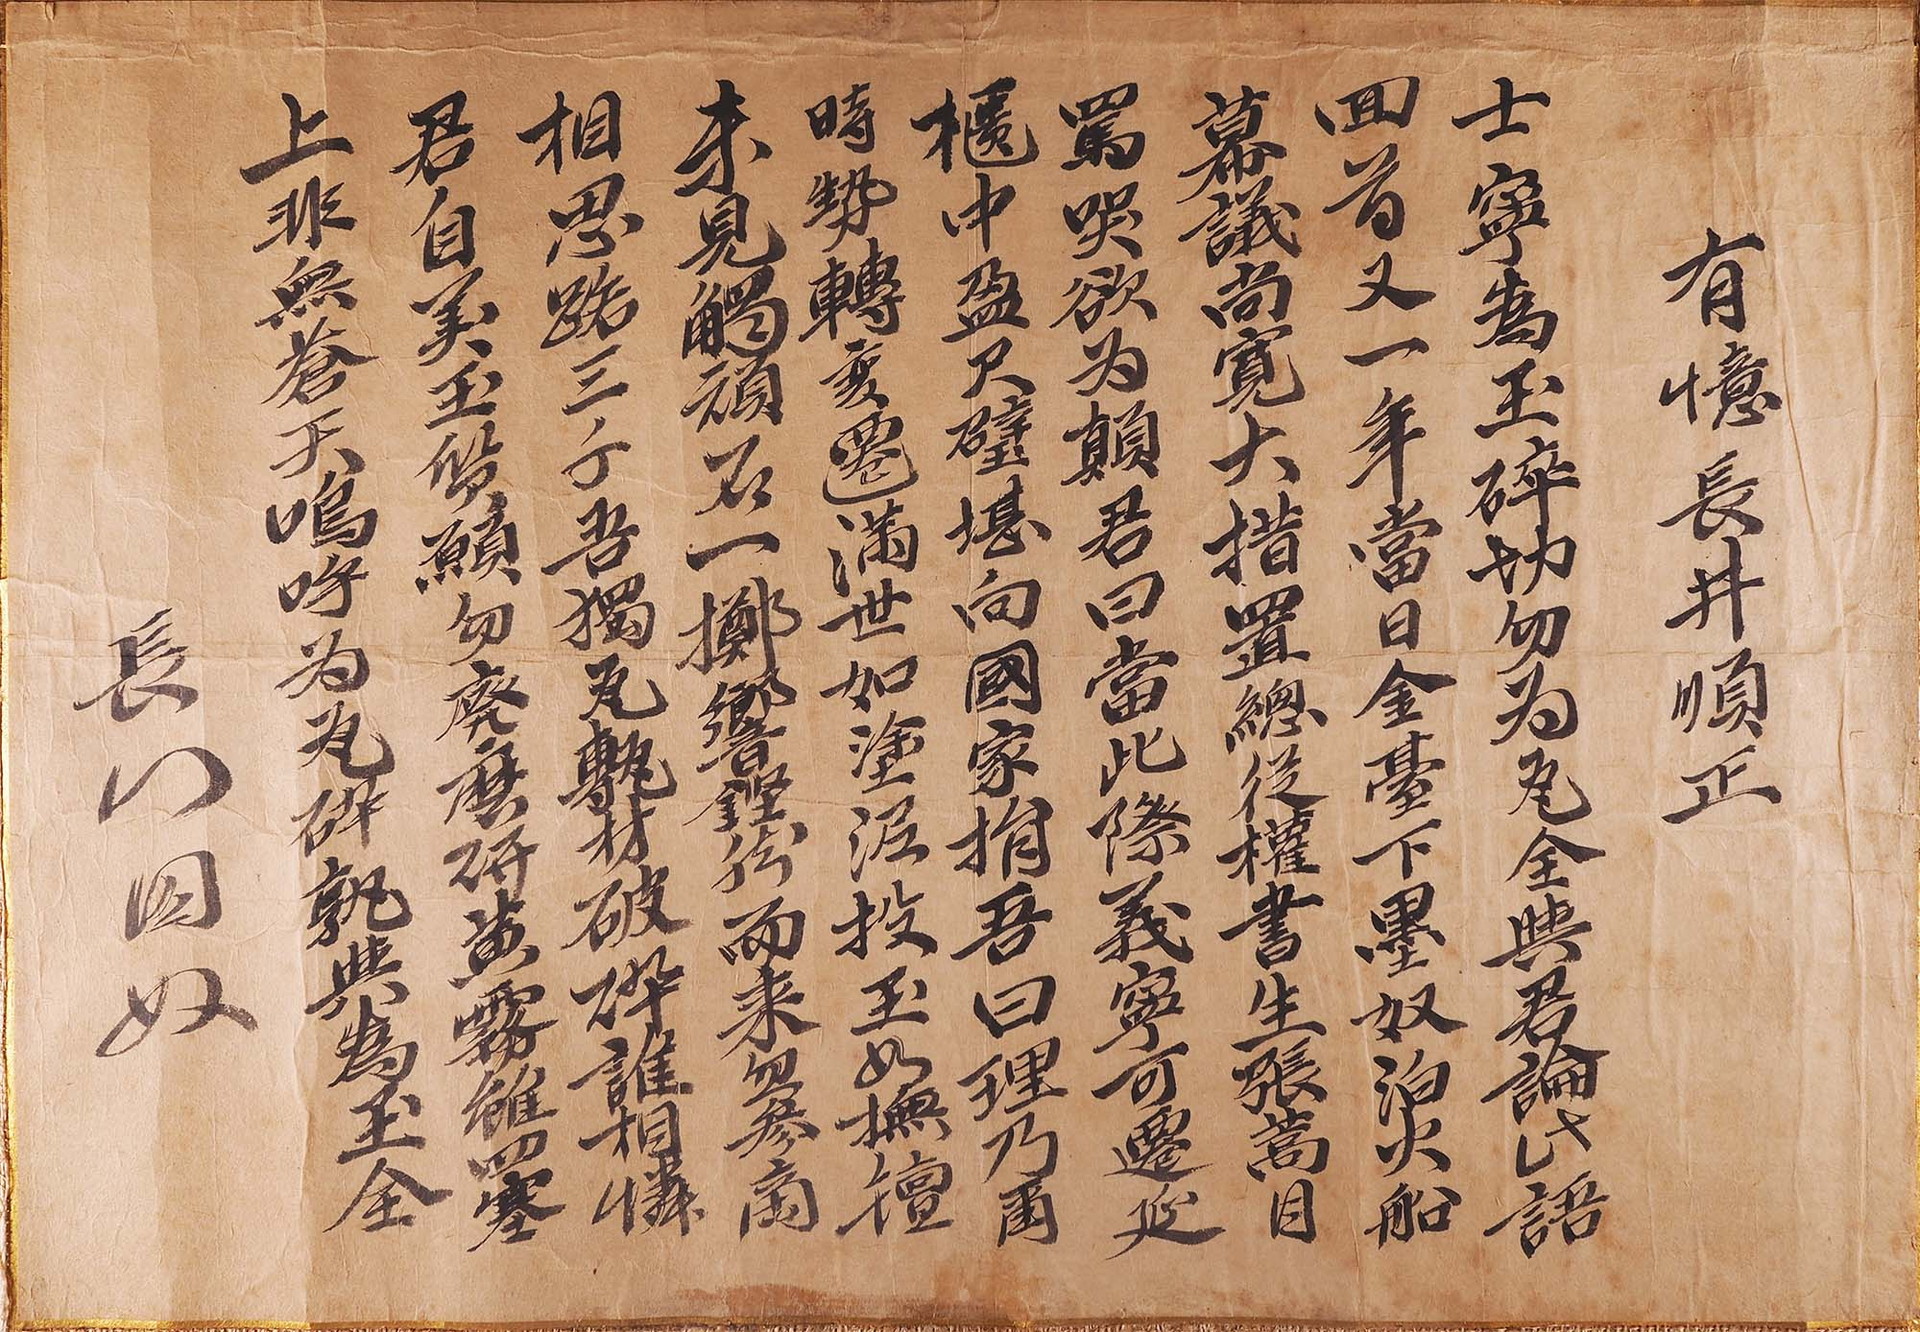 有憶長井順正
士寧為玉碎切勿为瓦全與君論此語
回首又一年當日金臺下墨奴泊火船
幕議尚寬大措置總從權書生張蒿目
罵哭欲为顛君曰當此際義寧可遷延
櫃中盈尺璧堪向國家捐吾曰理乃爾
時勢轉変遷滿世如塗泥投玉如撫氈
未見觸頑石一擲響鏗然而来忽參商
相思路三千吾獨瓦甎材破碎誰相憐
君自美玉質願勿廃磨研黄霧雖四塞
上非無蒼天嗚呼为瓦碎孰與為玉全
長門囚奴